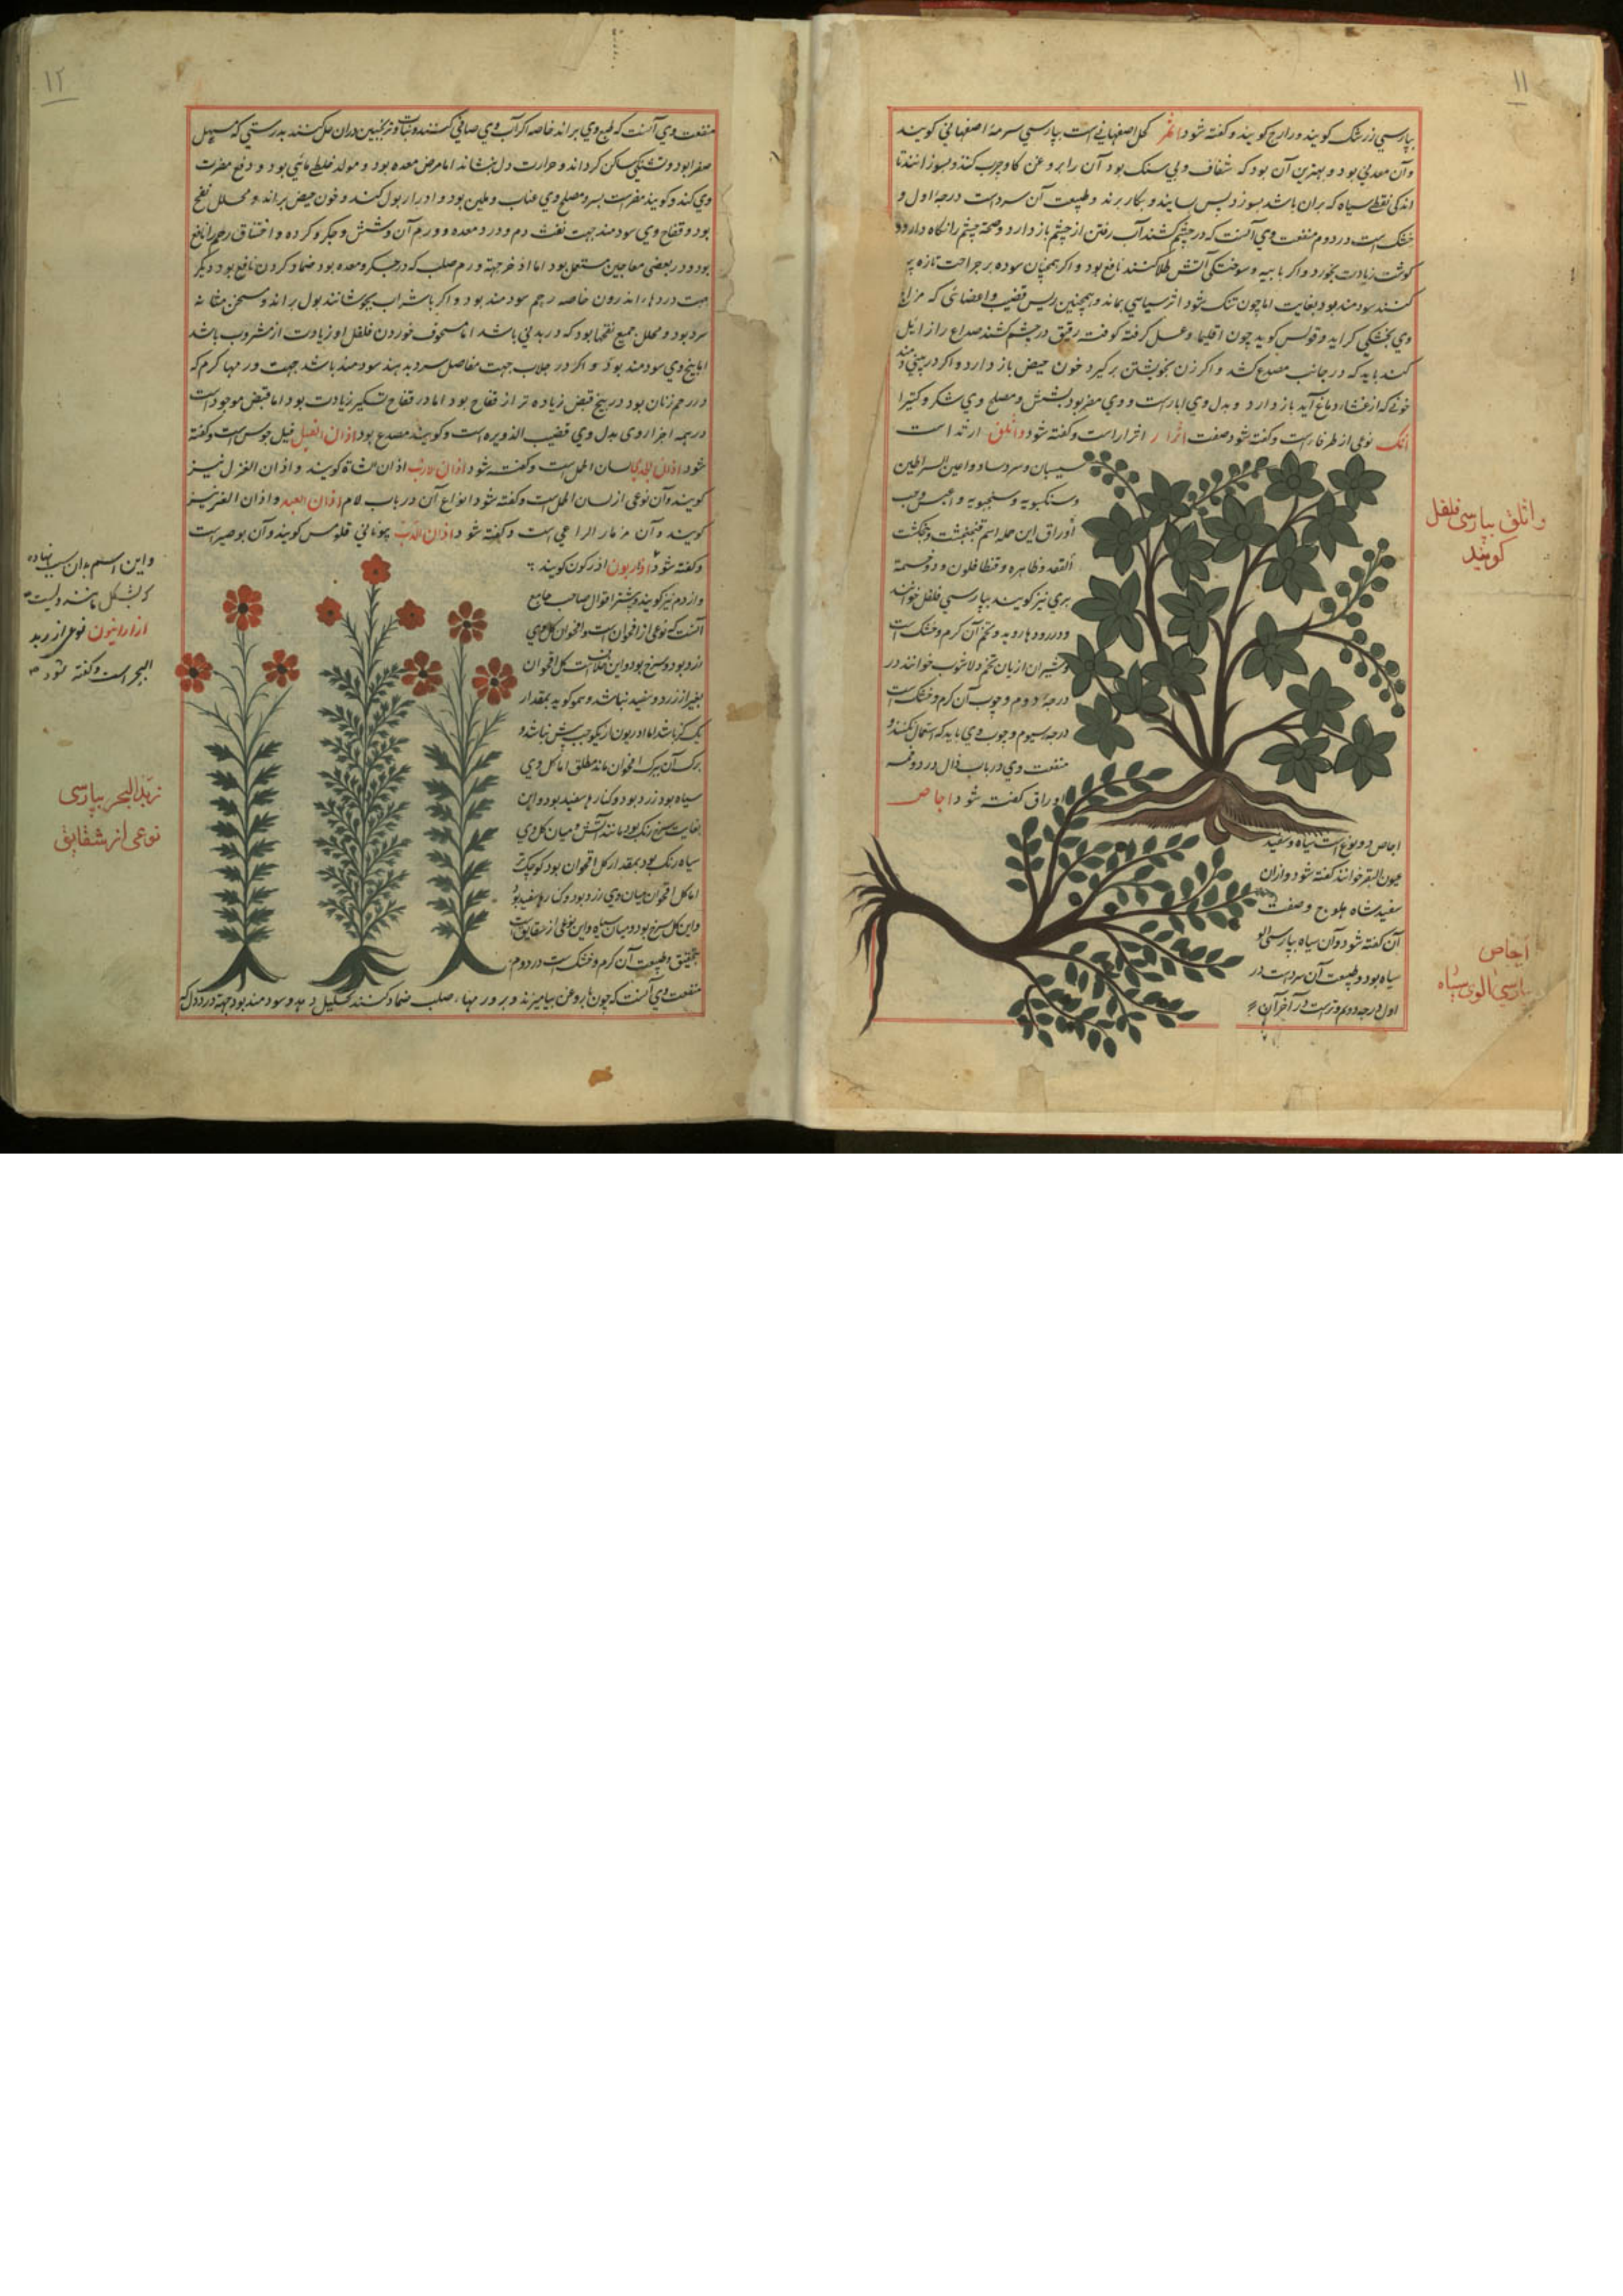 ١١
بپارسی زرشک کویند و زارج کویند و کفته شود اثمد کحل اصفهانی است بپارسی سرمهٔ اصفهانی کویند
و آن معدنی بود و بهترین آن بود که شفاف و بی سنک بود آن را بروغن کاو چرب کنند و بسوزانند تا
اندکی نقطهٔ سیاه که بران باشد بسوزد پس بسایند و بکار برند و طبیعت آن سرد است درجهٔ اول و
خشک است در دوم منفعت وی آنست که در چشم کشند آب رفتن از چشم باز دارد و صحة چشم را نکاه دارد و
کوشت زیادت بخورد و اکر با پیه و سوختکی آتش طلا کنند نافع بود و اکر همچنان سوده بر جراحت تازه
کنند سودمند بود بغایت اما چون تنک شود اثر سیاهی بماند و همچنین ریش قضیب و اعضائی که مزاج
وی بخشکی کراید و قولس کوید چون اقلیمیا و عسل کرفته کوفته رقیق در چشم کشند صداع را زائل
کند باید که در جانب مصدع کشد و اکر زن بخویشتن برکیرد خون حیض باز دارد و اکر در بینی دمند
خونی که از غشاء دماغ آید باز دارد و بدل وی ابار است و وی مضر بود بشش و مصلح وی شکر و کتیرا
اثک نوعی از طرفاء است و کفته شود صفت اثرار اثرار است و کفته شود واثلق ارثد است
سیسبان و سرد ساد و اعین السراطین
و سنکبویه و سنجبویه و حب
اوراق این جمله اسم فنجنکشت و پنجنکشت
بری نیز کویند بپارسی فلفل خوانند
و در رودها روید و تخم آن کرم و خشک است
و شیرازیان تخم دلاشوب خوانند در
درجهٔ دوم و چوب آن کرم و خشک است
درجه سیوم و چوب وی باید که استعمال نکنند و
منفعت وی در باب ذال در ذو خمسة
اوراق کفته شود اجاص
و اثلق بپارسی فلفل
کویند
اجاص دو نوع است سیاه و سفید
عیون البقر خوانند کفته شود و از آن
سفید شاه هلوج و صفت
آن کفته شود و آن سیاه بپارسی الو
سیاه بود و طبیعت آن سرد است در
اول درجه دوم و تر است در آخر آن
اجاص
پارسی الوی سیاه
١٢
منفعت وی آنست که طبع وی براند خاصه اکر آب وی صافی کنند و نبات و ترنجبین دران حل کنند بدرستی که مسهل
صفرا بود و تشنکی ساکن کرداند و حرارت دل بنشاند اما مرض معده بود و مولد خلطی مائی بود و دفع مضرت
وی کند و کویند مضر است بسر و مصلح وی عناب و ملین بود و ادرار بول کند و خون حیض براند و محلل نفخ
بود و فقاح وی سودمند جهت نفث دم و درد معده و ورم آن و شش و جکر و کرده و اختناق رحم را نافع
بود و در بعضی معاجین مستعمل بود اما اذخر جهة ورم صلب که در جکر و معده بود ضماد کردن نافع بود دیکر
جهت دردهاء اندرون خاصه رحم سودمند بود و اکر با شراب بجوشانند بول براند و مسخن مثانه
سرد بود و محلل جمیع نفخها بود که در بدنی باشد اما مسحوف خوردن فلفل او زیادت از مشروب باشد
اما بیخ وی سودمند بود و اکر در جلاب جهت مفاصل سرد بدهند سودمند باشد جهت ورمها کرم که
در رحم زنان بود در بیخ قبض زیاده تر از فقاح بود اما در فقاح تسکین زیادت بود اما قبض موجود است
در همه اجزاء وی بدل وی قضیب الذریره است و کویند مصدع بود اذان الفیل فیل جوس است و کفته
شود اذان الجدی لسان الحمل است و کفته شود اذان الارنب اذان الشاة کویند و اذان الغزل نیز
کویند و آن نوعی از لسان الحمل است و کفته شود انواع آن در باب لام اذان العبد و اذان العنز نیز
کویند و آن مزمار الراعی است و کفته شود اذان الدب یونانی قلومس کویند و آن بوصیر است
و کفته شود اذربون اذرکون کویند
و از دم نیز کویند و بیشتر اقوال صاحب جامع
آنست که نوعی از اقحوان است و اقحوان کل وی
زرد بود و سرخ بود و این خلافست کل اقحوان
بغیر از زرد و سفید نباشد و همو کوید بمقدار
یک کز باشد اما اذربون از یکوجب بیش نباشد و
برک آن ببرک اقحوان ماند مطلق اما کل وی
سیاه بود زرد بود و کنارها سفید بود و این
بغایت سرخ رنک بود مانند آتش و میان کل وی
سیاه رنک بود بمقدار کل اقحوان بود کوچکتر
اما کل اقحوان میان وی زرد بود و کنارها سفید بود
و این کل سرخ بود و میان سیاه و این نوعی از شقایق است
بتحقیق و طبیعت آن کرم و خشک است در دوم
منفعت وی آنست که چون با روغن بیامیزند و بر ورمهاء صلب ضماد کنند تحلیل دهد و سودمند بود جهة درد دل که
و این اسم بدان سبب نهاده
که بشکل مانند ولیست
ازاریون نوعی از زبد
البحر است و کفته شود
زبد البحر بپارسی
نوعی از شقایق